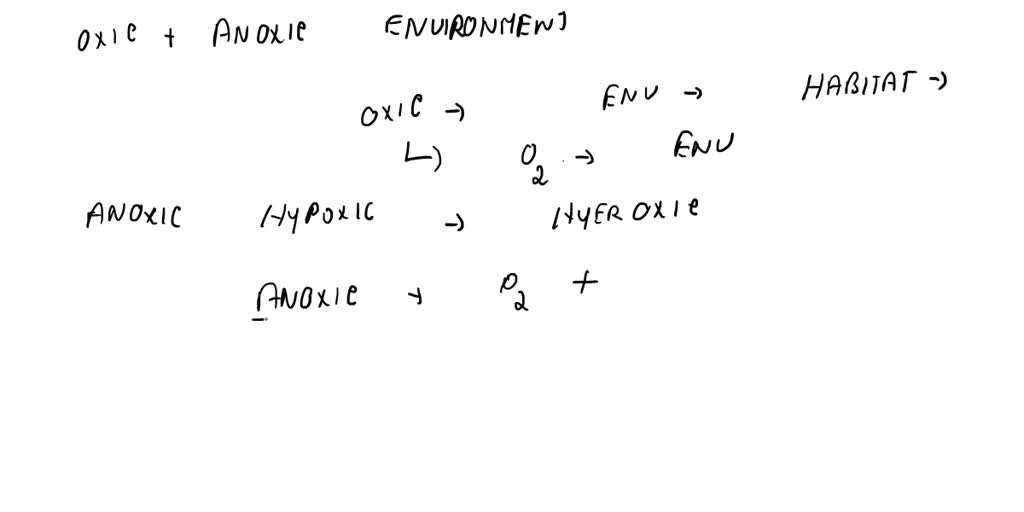 OXIC + ANOXIC ENVIRONMENT
OXIC → ENV → HABITAT →
↳ O2 → ENV
ANOXIC HYPOXIC → HYEROXIC
ANOXIC → O2 +